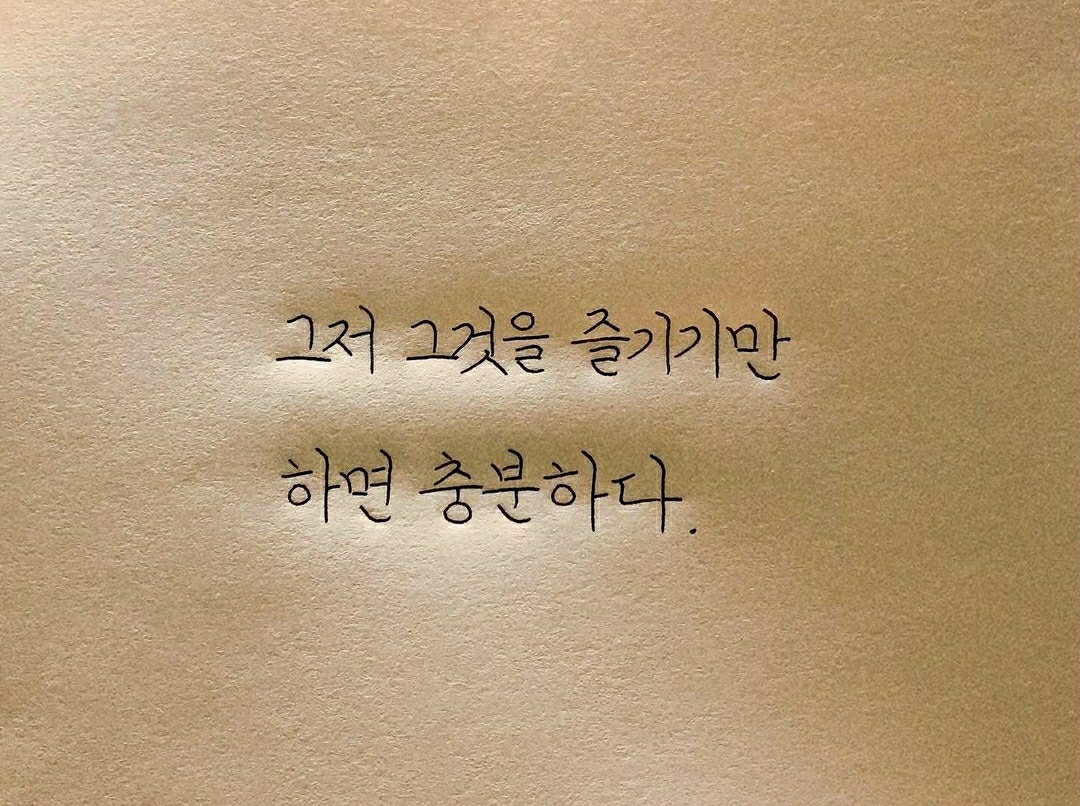 그저 그것을 즐기기만
하면 충분하다.